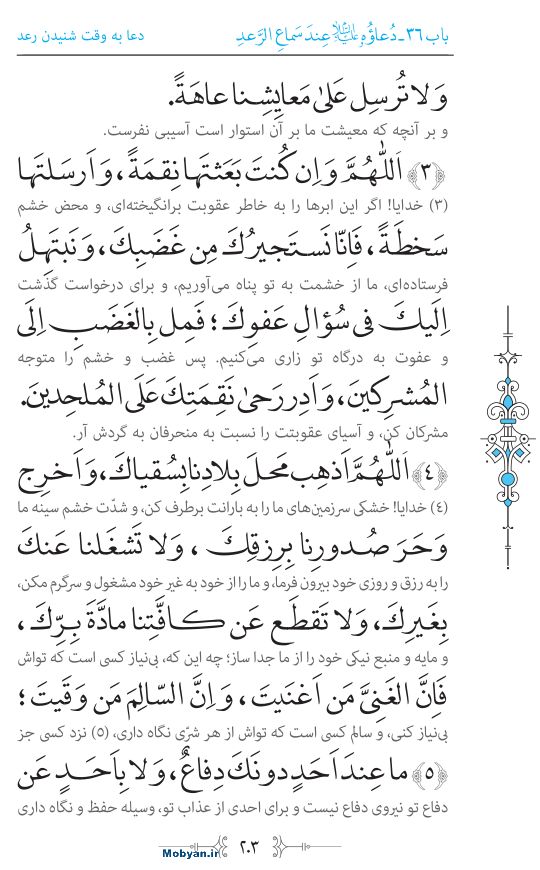 باب ۳۶ـ دُعاؤُهُ عِندَ سَماعِ الرَّعدِ
دعا به وقت شنیدن رعد
وَ لا تُرسِل عَلیٰ مَعایِشِنا عاهَةً.
و بر آنچه که معیشت ما بر آن استوار است آسیبی نفرست.
﴿۳﴾ اَللّٰهُمَّ وَ اِن کُنتَ بَعَثتَها نِقمَةً، وَ اَرسَلتَها
(۳) خدایا! اگر این ابرها را به خاطر عقوبت برانگیخته‌ای، و محض خشم
سَخطَةً، فَاِنّا نَستَجیرُکَ مِن غَضَبِکَ، وَ نَبتَهِلُ
فرستاده‌ای، ما از خشمت به تو پناه می‌آوریم، و برای درخواست گذشت
اِلَیکَ فی سُؤالِ عَفوِکَ؛ فَمِل بِالغَضَبِ اِلَی
و عفوت به درگاه تو زاری می‌کنیم. پس غضب و خشم را متوجه
المُشرِکینَ، وَ اَدِر رَحیٰ نَقِمَتِکَ عَلَی المُلحِدینَ.
مشرکان کن، و آسیای عقوبتت را نسبت به منحرفان به گردش آر.
﴿۴﴾ اَللّٰهُمَّ اَذهِب مَحلَ بِلادِنا بِسُقیاکَ، وَ اَخرِج
(۴) خدایا! خشکی سرزمین‌های ما را به بارانت برطرف کن، و شدّت خشم سینه ما
وَحَرَ صُدورِنا بِرِزقِکَ ، وَ لا تَشغَلنا عَنکَ
را به رزق و روزی خود بیرون فرما، و ما را از خود به غیر خود مشغول و سرگرم مکن،
بِغَیرِکَ، وَ لا تَقطَع عَن کافَّتِنا مادَّةَ بِرِّکَ ،
و مایه و منبع نیکی خود را از ما جدا ساز؛ چه این که، بی‌نیاز کسی است که تواش
فَاِنَّ الغَنِیَّ مَن اَغنَیتَ ، وَ اِنَّ السّالِمَ مَن وَقَیتَ ؛
بی‌نیاز کنی، و سالم کسی است که تواش از هر شرّی نگاه داری، (۵) نزد کسی جز
﴿۵﴾ ما عِندَ اَحَدٍ دونَکَ دِفاعٌ، وَ لا بِاَحَدٍ عَن
دفاع تو نیروی دفاع نیست و برای احدی از عذاب تو، وسیله حفظ و نگاه داری
۲۰۳
Mobyan.ir